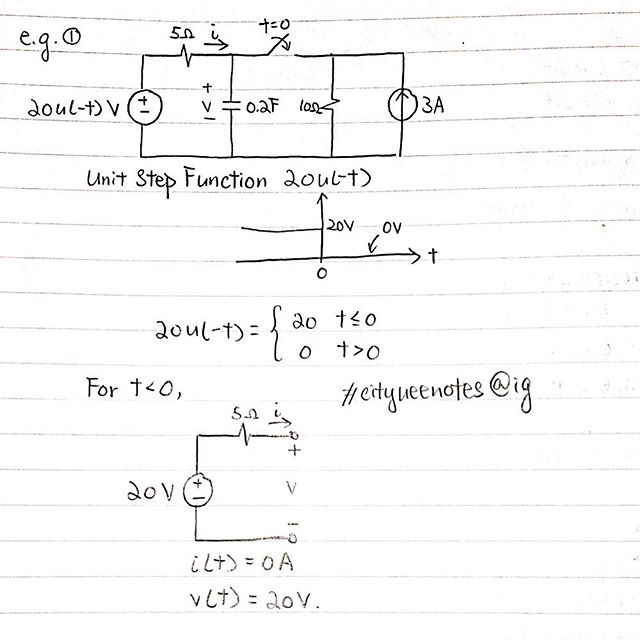 e.g. ①
5Ω i t=0
20u(-t) V + - + v - 0.2F 10Ω 3A
Unit Step Function 20u(-t)
20V 0V
t
0
20u(-t) = { 20 t≤0
0 t>0
For t<0, #cityueenotes@ig
5Ω i
+
20V + - v
-
i(t) = 0A
v(t) = 20V.